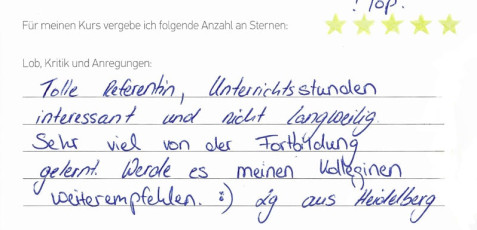 ! Top.
Für meinen Kurs vergebe ich folgende Anzahl an Sternen:
Lob, Kritik und Anregungen:
Tolle Referentin, Unterrichtsstunden
interessant und nicht langweilig.
Sehr viel von der Fortbildung
gelernt. Werde es meinen Kolleginen
weiterempfehlen. :) Lg aus Heidelberg